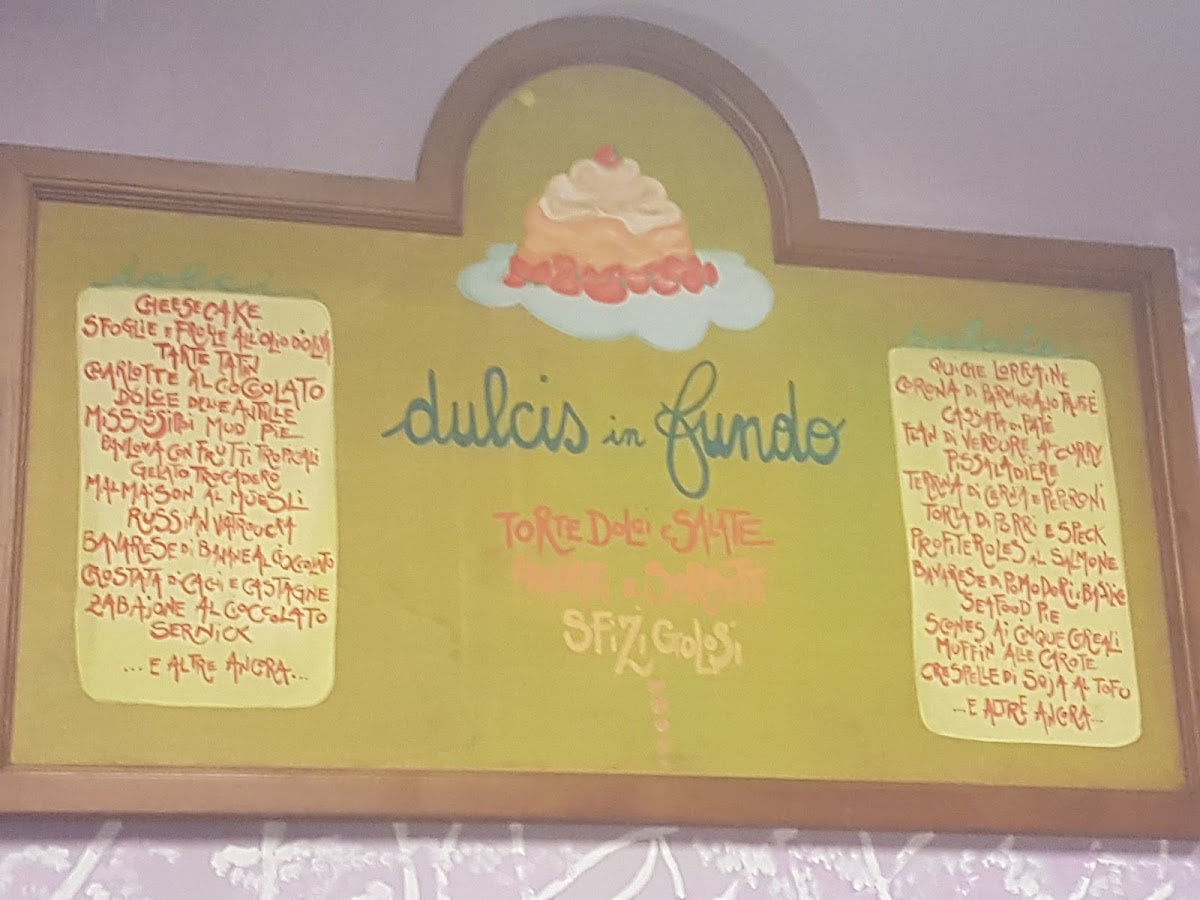 dolci
CHEESECAKE
SFOGLIE E FROLLE ALL'OLIO D'OLIVA
TARTE TATIN
CHARLOTTE AL CIOCCOLATO
DOLCE DELLE ANTILLE
MISSISSIPPI MUD PIE
CON FRUTTI TROPICALI
GELATO TROCADERO
MALMAISON AL MUESLI
RUSSIAN VATROUCKA
BAVARESE DI BANANE AL CIOCCOLATO
CROSTATA DI CACHI E CASTAGNE
ZABAIONE AL CIOCCOLATO
SERNICK
...E ALTRE ANCORA...
dulcis in fundo
TORTE DOLCI E SALATE
E SORBETTI
SFIZI GOLOSI
QUICHE LORRAINE
CORONA DI PARMIGIANO
CASSATA DI PATÈ
FLAN DI VERDURE AL CURRY
PISSALADIERE
TERRINA DI E PEPERONI
TORTA DI PORRI E SPECK
PROFITEROLES AL SALMONE
BAVARESE DI POMODORI E BASILICO
SEAFOOD PIE
SCONES AI CINQUE CEREALI
MUFFIN ALLE CAROTE
CRESPELLE DI SOJA AL TOFU
...E ALTRE ANCORA...